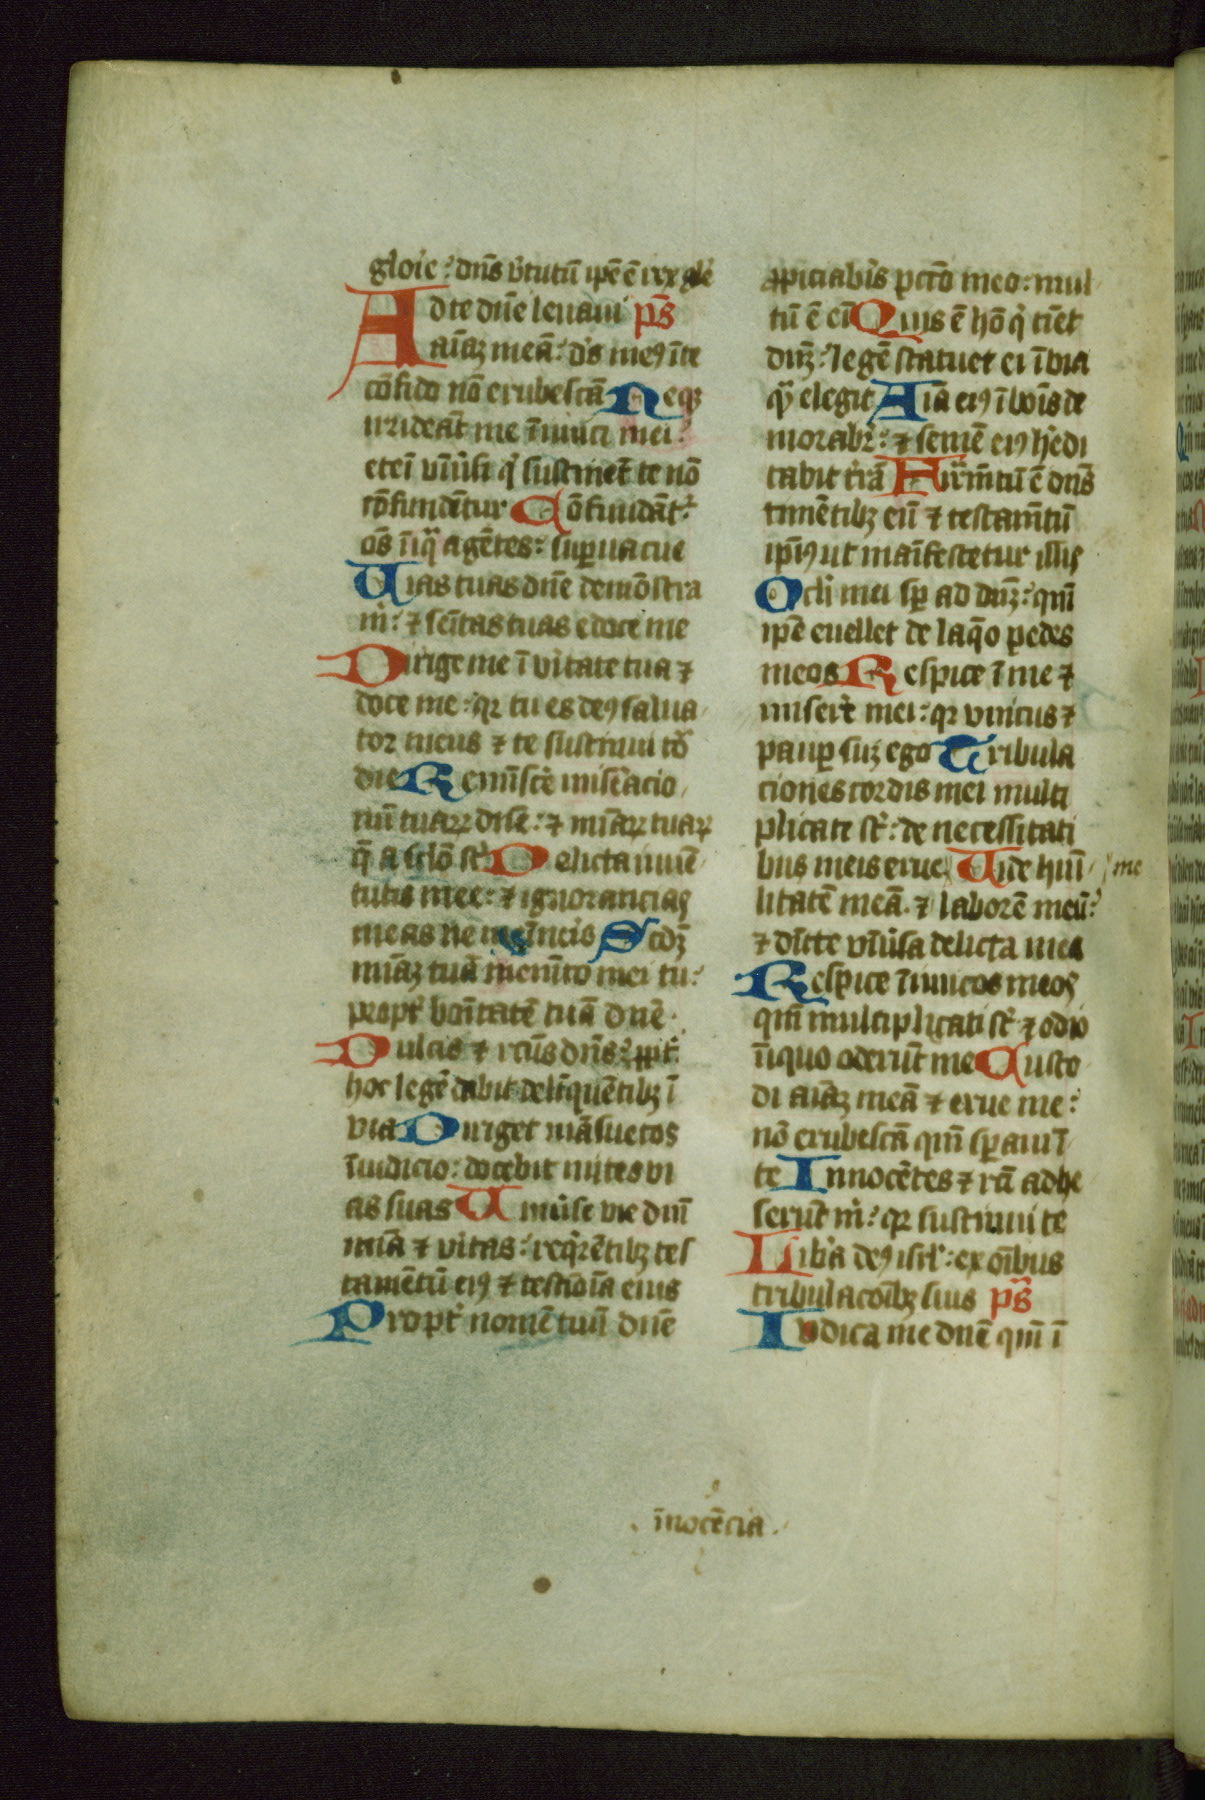 gloıe: dn̄s v̓tutū ip̄e ē rex gl̓e
Ad te dn̄e leuaui ps̄
aīaꝫ meā: ds̄ meꝰ ī te
cōfido nō erubescā Neqꝫ
irrideāt me īimici mei:
eteī vniu̓si q̓ sustinēt te nō
cōfundētur Cōfundāt᷑
om̄s īiqͣ agētes: suꝑuacue
Uias tuas dn̄e demōstra
m̓: ⁊ semitas tuas edoce me
Dirige me ī v̓itate tua ⁊
doce me: qꝛ tu es deꝰ salua
tor meus ⁊ te sustinui to᷑
die Remīsc̓e mis̓eacio
nū tuaꝝ dn̄e: ⁊ mīaꝝ tuaꝝ
q̄ a sc̄lo st̄ Delicta iuuē
tutis mee: ⁊ ignorancias
meas ne memīeris Scd̄ꝫ
mīaꝫ tuā memēto mei tu:
propt̓ bonitatē tuā dn̄e
Dulcis ⁊ rectus dn̄s: ꝓpt̓
hoc legē dabit delīquētibꝫ ī
via Diriget māsuetos
ī iudicio: docebit mites vi
as suas Uniu̓se vie dn̄i
mīa ⁊ v̓itas: reqͥrētibꝫ tes
tamētū eiꝰ ⁊ testīoīa eius
Propt̓ nomē tuū dn̄e
ꝓpiciab̓is pctō meo: mul
tū ē eī Quis ē hō qͥ timet
dn̄ꝫ: legē statuet ei ī via
quā elegit Aīa eiꝰ ī bōis de
morabr̓: ⁊ semē eiꝰ h̓edi
tabit t̓rā Firmātū ē dn̄s
timētibꝫ eū ⁊ testam̄tū
ip̄iꝰ ut maīfestetur illis
Ocli mei sp̄ ad dn̄ꝫ: qm̄
ip̄e euellet de laq̄o pedes
meos Respice ī me ⁊
miser̓e mei: qꝛ vnicus ⁊
pauꝑ suꝫ ego Tribula
ciones cordis mei multi
plicate st̄: de necessitati
bus meis erue me Uide hui
litatē meā ⁊ laborē meū:
⁊ dīitte vniu̓sa delicta mea
Respice īimicos meos
qm̄ multiplicati st̄ ⁊ odio
īiquo oderūt me Custo
di aīaꝫ meā ⁊ erue me:
nō erubescā qm̄ sꝑaui ī
te Innocētes ⁊ rcī adhe
serūt m̓: qꝛ sustinui te
Lib̓a deꝰ isr̄l: ex oībus
tribulacōibꝫ suis ps̄
Iudica me dn̄e qm̄ ī
īnocēcia